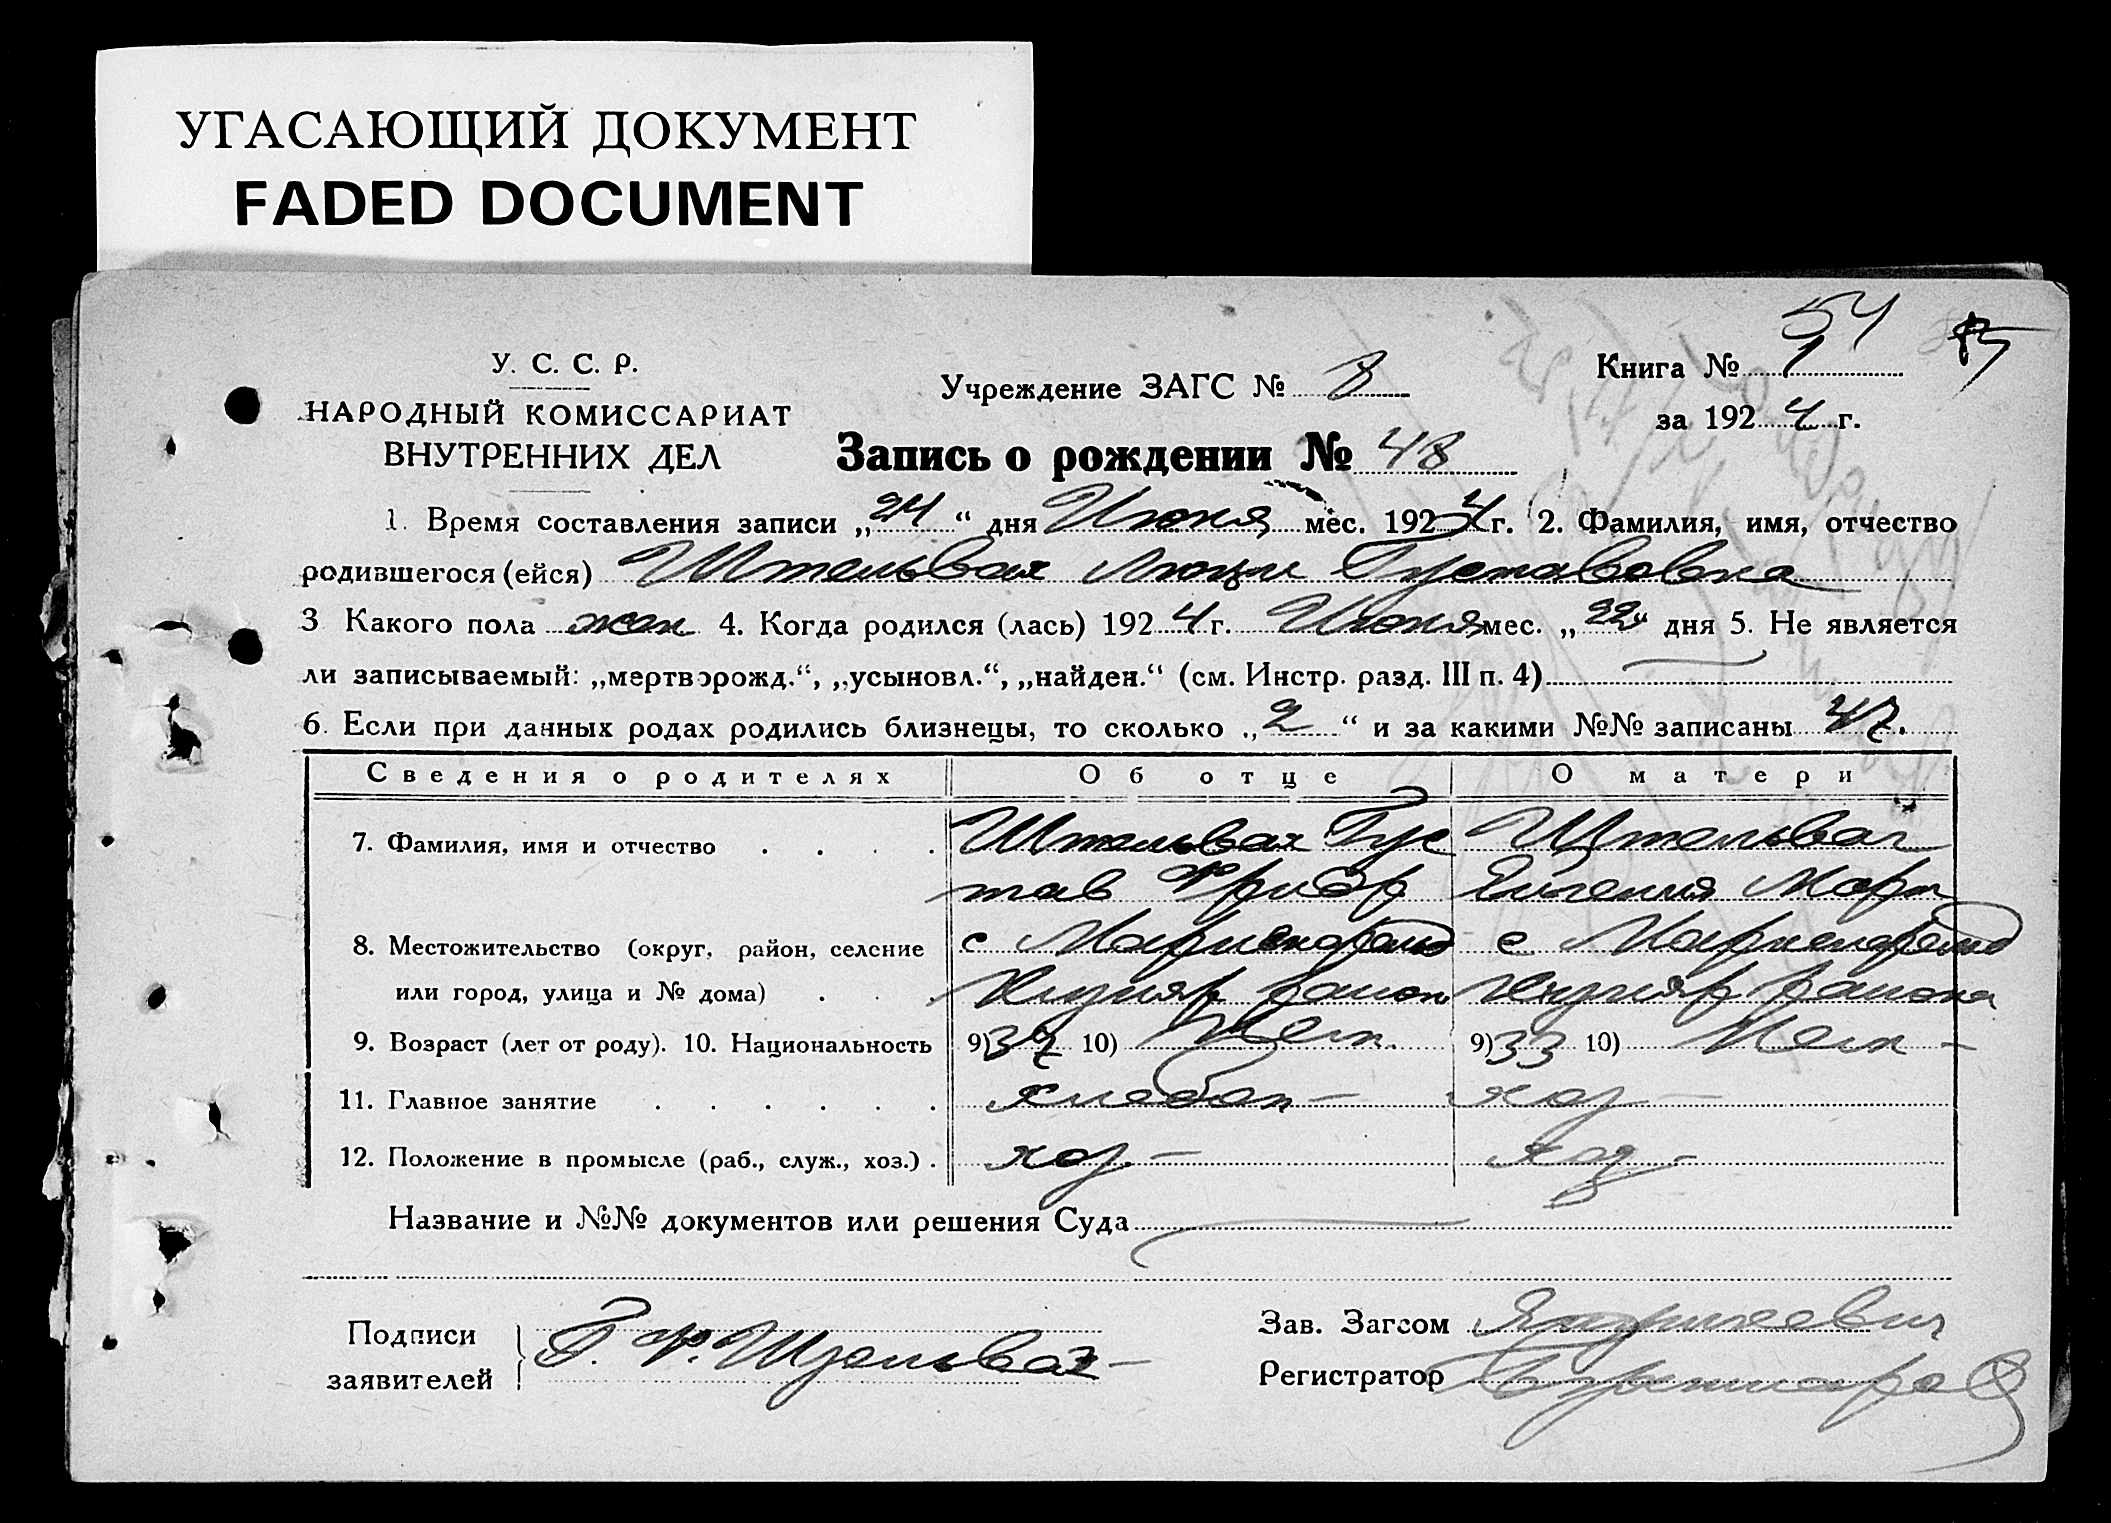 УГАСАЮЩИЙ ДОКУМЕНТ
FADED DOCUMENT
54
У. С. С. Р.
НАРОДНЫЙ КОМИССАРИАТ
ВНУТРЕННИХ ДЕЛ
Учреждение ЗАГС № 8
Книга № 1
за 1924 г.
Запись о рождении № 48
1. Время составления записи „24“ дня Июня мес. 1924 г. 2. Фамилия, имя, отчество
родившегося (ейся) Штельвах Люци Густавовна
3 Какого пола жен 4. Когда родился (лась) 1924 г. Июня мес. „22“ дня 5. Не является
ли записываемый: „мертворожд.“, „усыновл.“, „найден.“ (см. Инстр. разд. III п. 4)
6. Если при данных родах родились близнецы, то сколько „2“ и за какими №№ записаны 47.
Сведения о родителях Об отце О матери
7. Фамилия, имя и отчество Штельвах Гус Штельвах
тав Фридр Евгения Март
8. Местожительство (округ, район, селение с Мариенфельд с Мариенфельд
или город, улица и № дома) район района
9. Возраст (лет от роду). 10. Национальность 9) 37 10) Нем. 9) 33 10) Нем –
11. Главное занятие хлебоп – хоз –
12. Положение в промысле (раб., служ., хоз.) . хоз. – хоз –
Название и №№ документов или решения Суда
Подписи
заявителей
Г. Ф. Штельвах –
Зав. Загсом
Регистратор